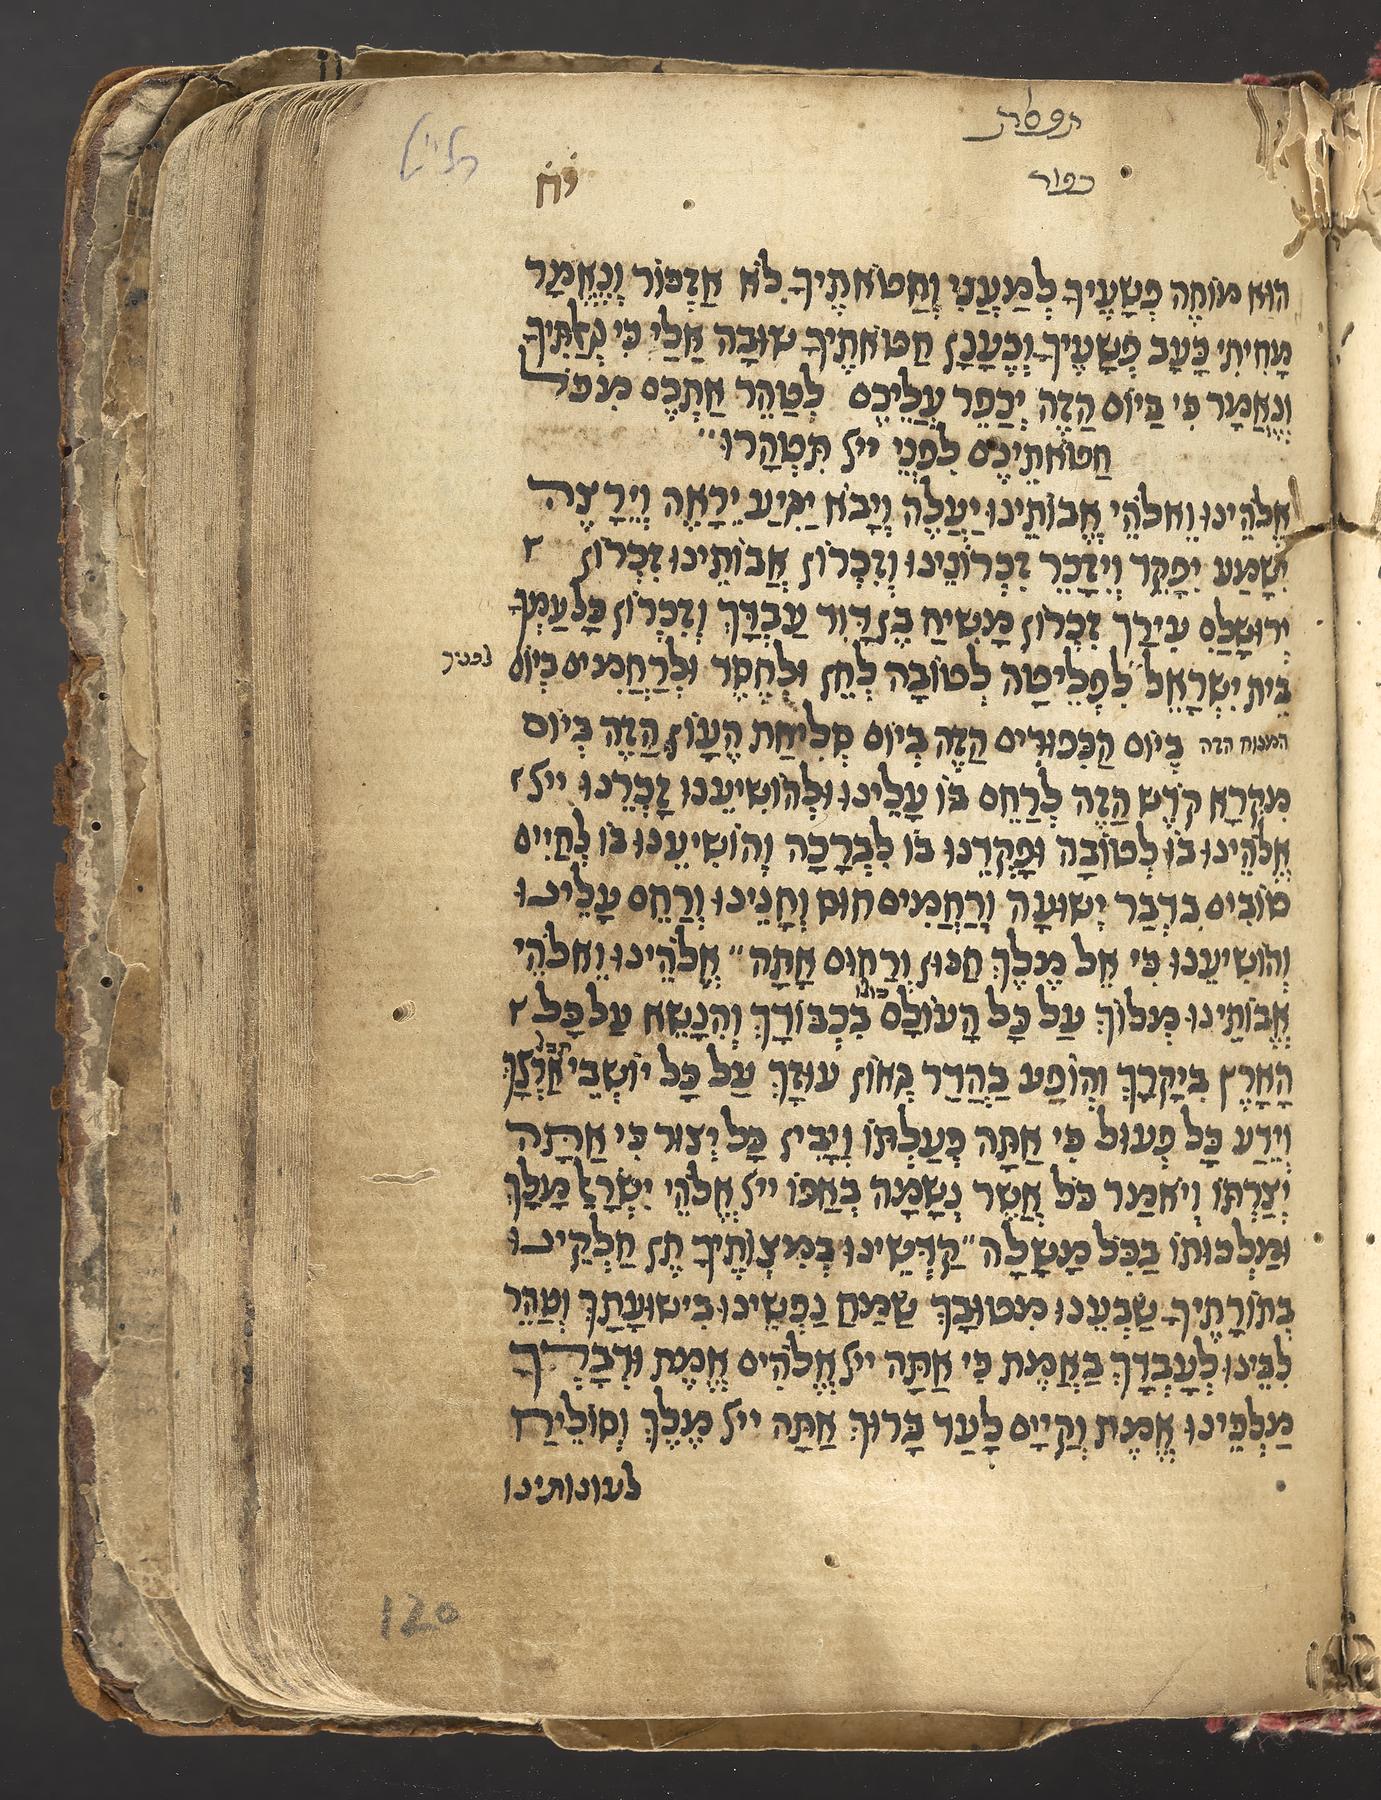 תפסת
כפור
יח
הוּא מוֹחֶה פְשָׁעֶיךָ לְמַעֲנִי וְחַטֹאתֶיךָ לֹא אֶזְכּוֹר וְנֶאֱמַר
מָחִיתִי כָּעָב פְשָׁעֶיךָ וְכֶעָנָן חַטֹאתֶיךָ שׁוּבָה אֵלַי כִּי גְאַלְתִּיךָ
וְנֶאֱמַר כִּי בַּיוֹם הַזֶה יְכַפֵר עֲלֵיכֶם לְטַהֵר אֶתְכֶם מִכּל
חַטֹאתֵיכֶם לִפְנֵי ייל תִּטְהָרוּ
אֱלֹהֵינוּ וֵאלֹהֵי אֲבוֹתֵינוּ יַעֲלֶה וְיָבֹא יַגִיעַ יֵרָאֶה וְיֵרָצֶה
יִשָׁמַע יִפָקֵד וְיִזָכֵר זִכְרוֹנֵינוּ וְזִכְרוֹן אֲבוֹתֵינוּ זִכְרוֹן
יְרוּשָׁלַםִ עִירָךְ זִכְרוֹן מָשִׁיחַ בֶן דָוִד עַבְדָךְ וְזִכְרוֹן כָּל עַמְךָ
בֵית יִשְׂרָאֵל לִפְלֵיטָה לְטוֹבָה לְחֵן וּלְחֶסֶד וּלְרַחֲמִים בְיוֹם
לפניך
המנוח הזה בְיוֹם הַכִּפוּרִים הַזֶה בְיוֹם סְלִיחַת הֶעָוֹן הַזֶה בְיוֹם
מִקְרָא קֹדֶשׁ הַזֶה לְרַחֵם בּוֹ עָלֵינוּ וּלְהוֹשִׁיעֵנוּ זָכְרֵנוּ ייל
אֱלֹהֵינוּ בּוֹ לְטוֹבָה וּפָקְדֵנוּ בּוֹ לִבְרָכָה וְהוֹשִׁיעֵנוּ בּוֹ לְחַיִים
טוֹבִים בִּדְבַר יְשׁוּעָה וְרַחֲמִים חוּס וְחָנֵינוּ וְרַחֵם עָלֵינוּ
וְהוֹשִׁיעֵנוּ כִּי אֵל מֶלֶךְ חַנוּן וְרַחוּם אָתָה אֱלֹהֵינוּ וֵאלֹהֵי
אֲבוֹתֵינוּ מְלוֹךְ עַל כָּל הָעוֹלָם כולו בִּכְבוֹדָךְ וְהִנָשֵׂא עַל כָּל
הָאָרֶץ בִּיקָרָךְ וְהוֹפַע בַהֲדַר גְאוֹן עוּזָךְ עַל כָּל יוֹשְׁבֵי תבל אַרְצָךְ
וְיֵדַע כָּל פָעוּל כִּי אַתָּה פְעַלְתּוֹ וְיָבִין כָּל יְצוּר כִּי אַתָּה
יְצַרְתּוֹ וְיֹאמַר כֹּל אֲשֶׁר נְשָׁמָה בְאַפוֹ ייל אֱלֹהֵי יִשְׂרָאֵל מָלָךְ
וּמַלְכוּתוֹ בַכֹּל מָשָלָה קַדְשֵׁינוּ בְמִצְוֹתֶיךָ תֶן חֶלְקֵינוּ
בְתוֹרָתֶיךָ שַבְעֵנוּ מִטוּבָךְ שַמַח נַפְשֵׁינוּ בִישׁוּעָתָךְ וְטַהֵר
לִבֵּינוּ לְעָבְדָךְ בַאֲמֶת כִּי אַתָּה ייל אֱלֹהִים אֱמֶת וּדְבָרְךָ
מַלְכֵּינוּ אֱמֶת וְקַיָים לָעַד בָּרוּךְ אַתָּה ייל מֶלֶךְ וְסוֹלֵיחַ
לעונותינו
120